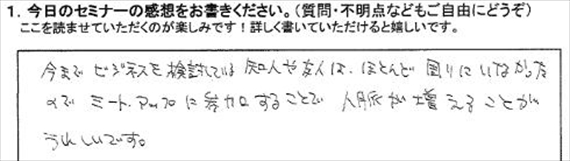 1. 今日のセミナーの感想をお書きください。(質問・不明点などもご自由にどうぞ)
ここを読ませていただくのが楽しみです!詳しく書いていただけると嬉しいです。
今まで ビジネスを検討している 知人や友人は、ほとんど 周りにいなかった
ので ミートアップに参加することで 人脈が増えることが
うれしいです。